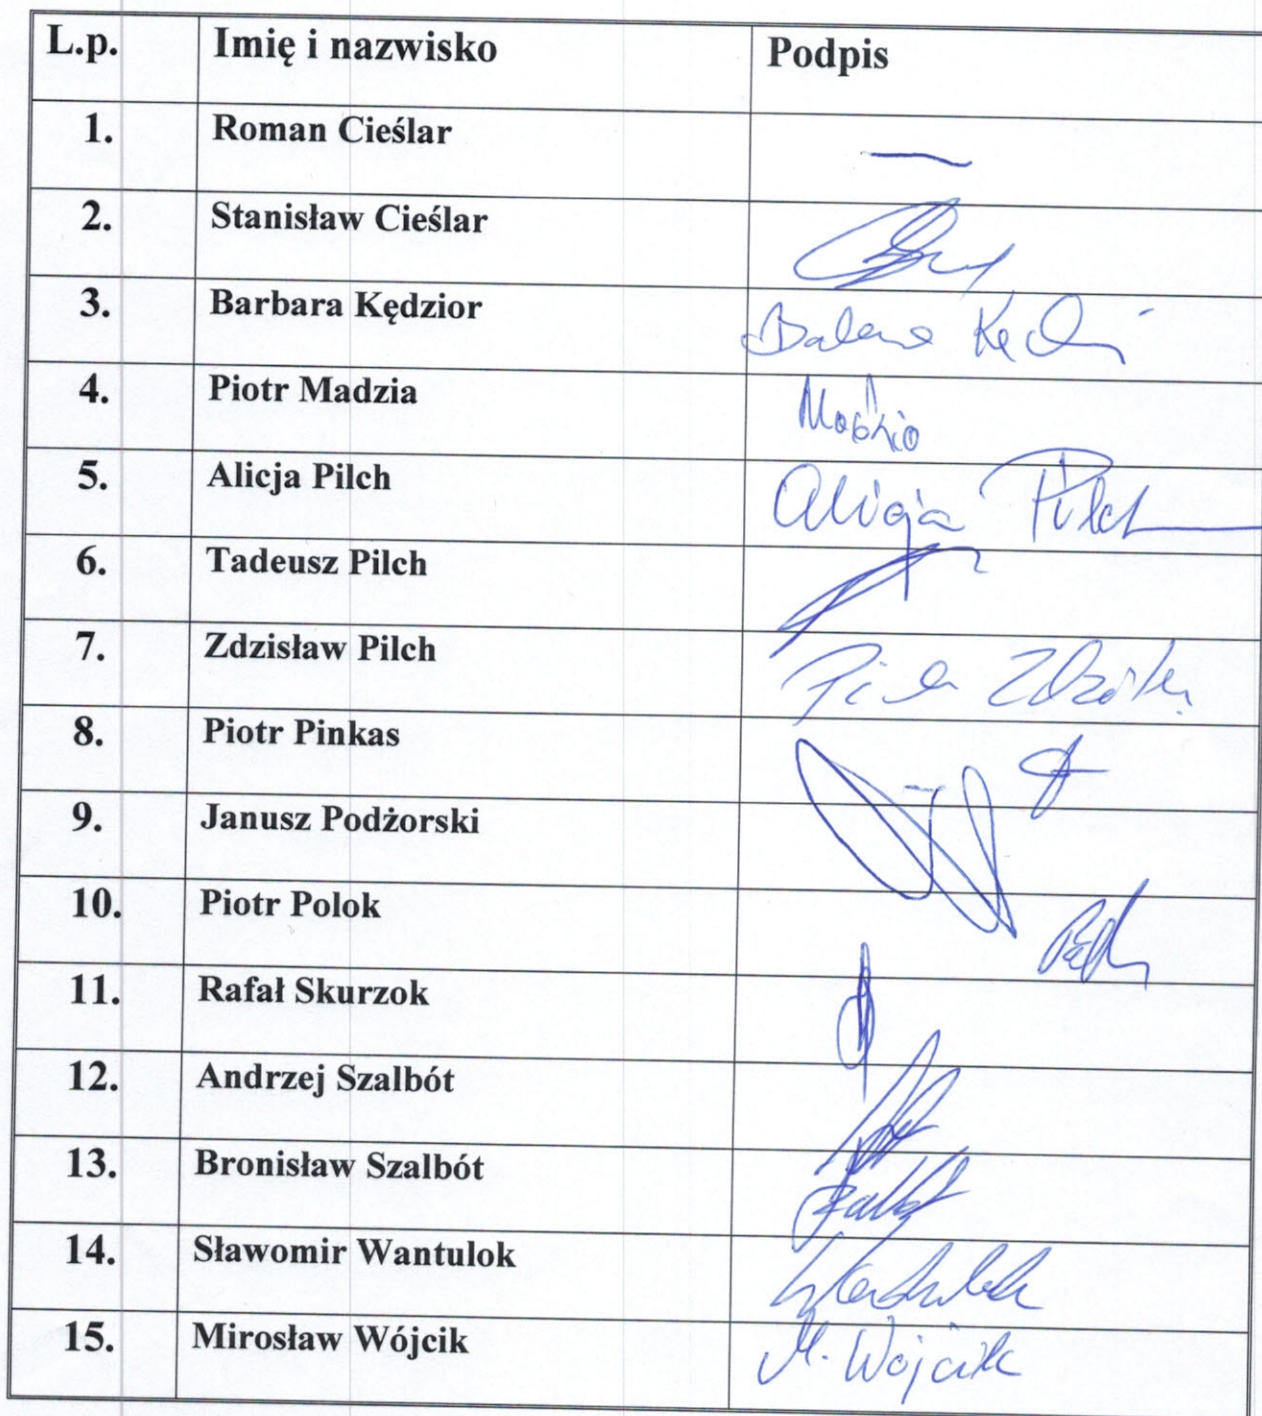 L.p. Imię i nazwisko Podpis
1. Roman Cieślar —
2. Stanisław Cieślar
3. Barbara Kędzior
4. Piotr Madzia
5. Alicja Pilch Alicja Pilch
6. Tadeusz Pilch
7. Zdzisław Pilch
8. Piotr Pinkas
9. Janusz Podżorski
10. Piotr Polok
11. Rafał Skurzok
12. Andrzej Szalbót
13. Bronisław Szalbót
14. Sławomir Wantulok
15. Mirosław Wójcik M. Wójcik